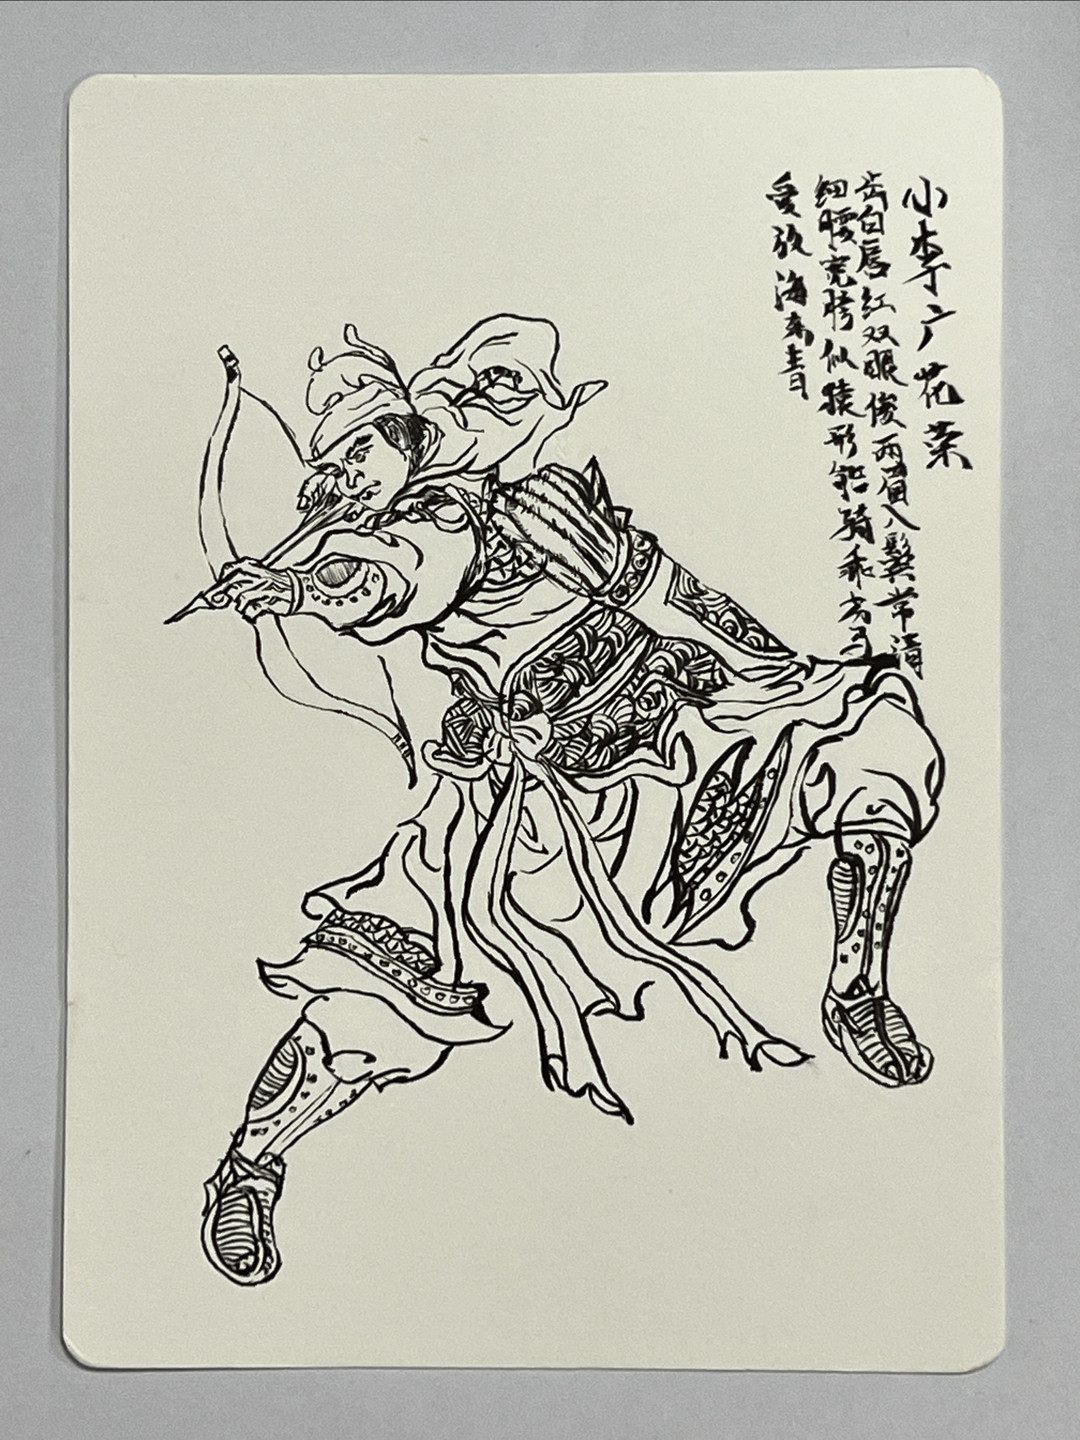 小李广花荣
齿白唇红双眼俊两眉入鬓常清
细腰宽膀似猿形能骑乖劣马
爱放海东青